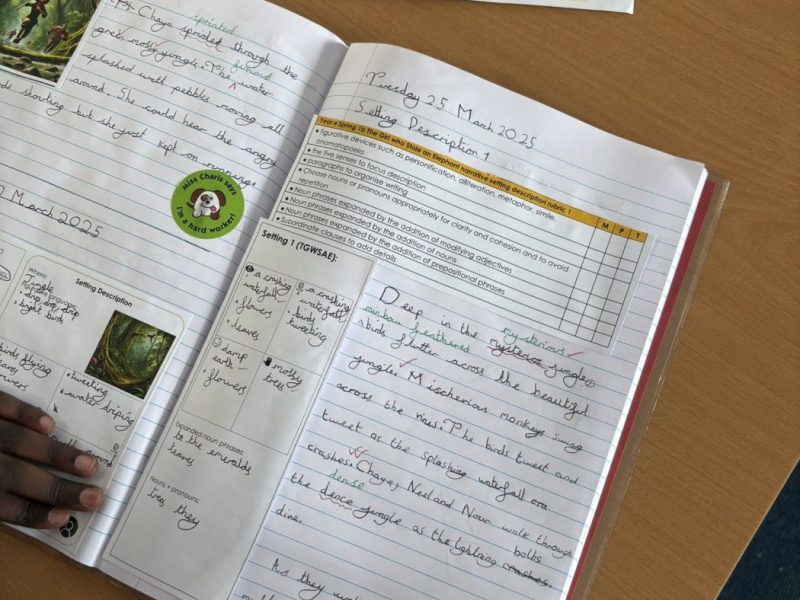 sprinted
Chaya sprided through the
green mossy jungle. The water
splashed with pebbles moving all
around. She could hear the angry
shouting but she just kept on running.
Miss Charis says
I'm a hard worker!
March 2025
Setting Description
Where:
Jungle
drip, drip, drip
bright birds
birds flying
tweeting
water driping
Setting 1 (TGWSAE):
a crashing
waterfall
flowers
leaves
a crashing
waterfall
birds
tweeting
damp
earth
flowers
mossy
trees
Expanded noun phrases:
to the emeralds
leaves
Nouns + pronouns:
trees they
Tuesday 25 March 2025
Setting Description 1
Year 4 Spring 1b The Girl who Stole an Elephant narrative setting description rubric 1
M P T
figurative devices such as personification, alliteration, metaphor, simile,
onomatopoeia
the five senses to focus description
paragraphs to organise writing
Choose nouns or pronouns appropriately for clarity and cohesion and to avoid
repetition
Noun phrases expanded by the addition of modifying adjectives
Noun phrases expanded by the addition of nouns
Noun phrases expanded by the addition of prepositional phrases
Subordinate clauses to add details
mysterious
Deep in the mysterence jungle,
rainbow feathered
birds flutter across the beautiful
jungle. Mischerious monkeys swing
across the vines. The birds tweet and
tweet as the splashing waterfall
crashes. Chaya, Neel and Nour walk through
dense
the dence jungle as the lightning crashes.
bolts
dine.
As they